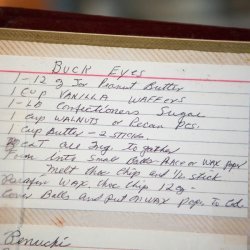 BUCK EYES
1 - 12 oz Jar Peanut Butter
1 CUP VANILLA WAFFERS
1 - LB Confectioners Sugar
1 CUP WALNUTS or Pecan pcs.
1 cup Butter - 2 STICKS
MEAT all Ing. to gather
Form Into Small Balls Place on wax paper
Melt Choc Chip and ½ stick
Parafin Wax. Choc Chip 12 oz -
Cover Balls and Put on WAX paper to